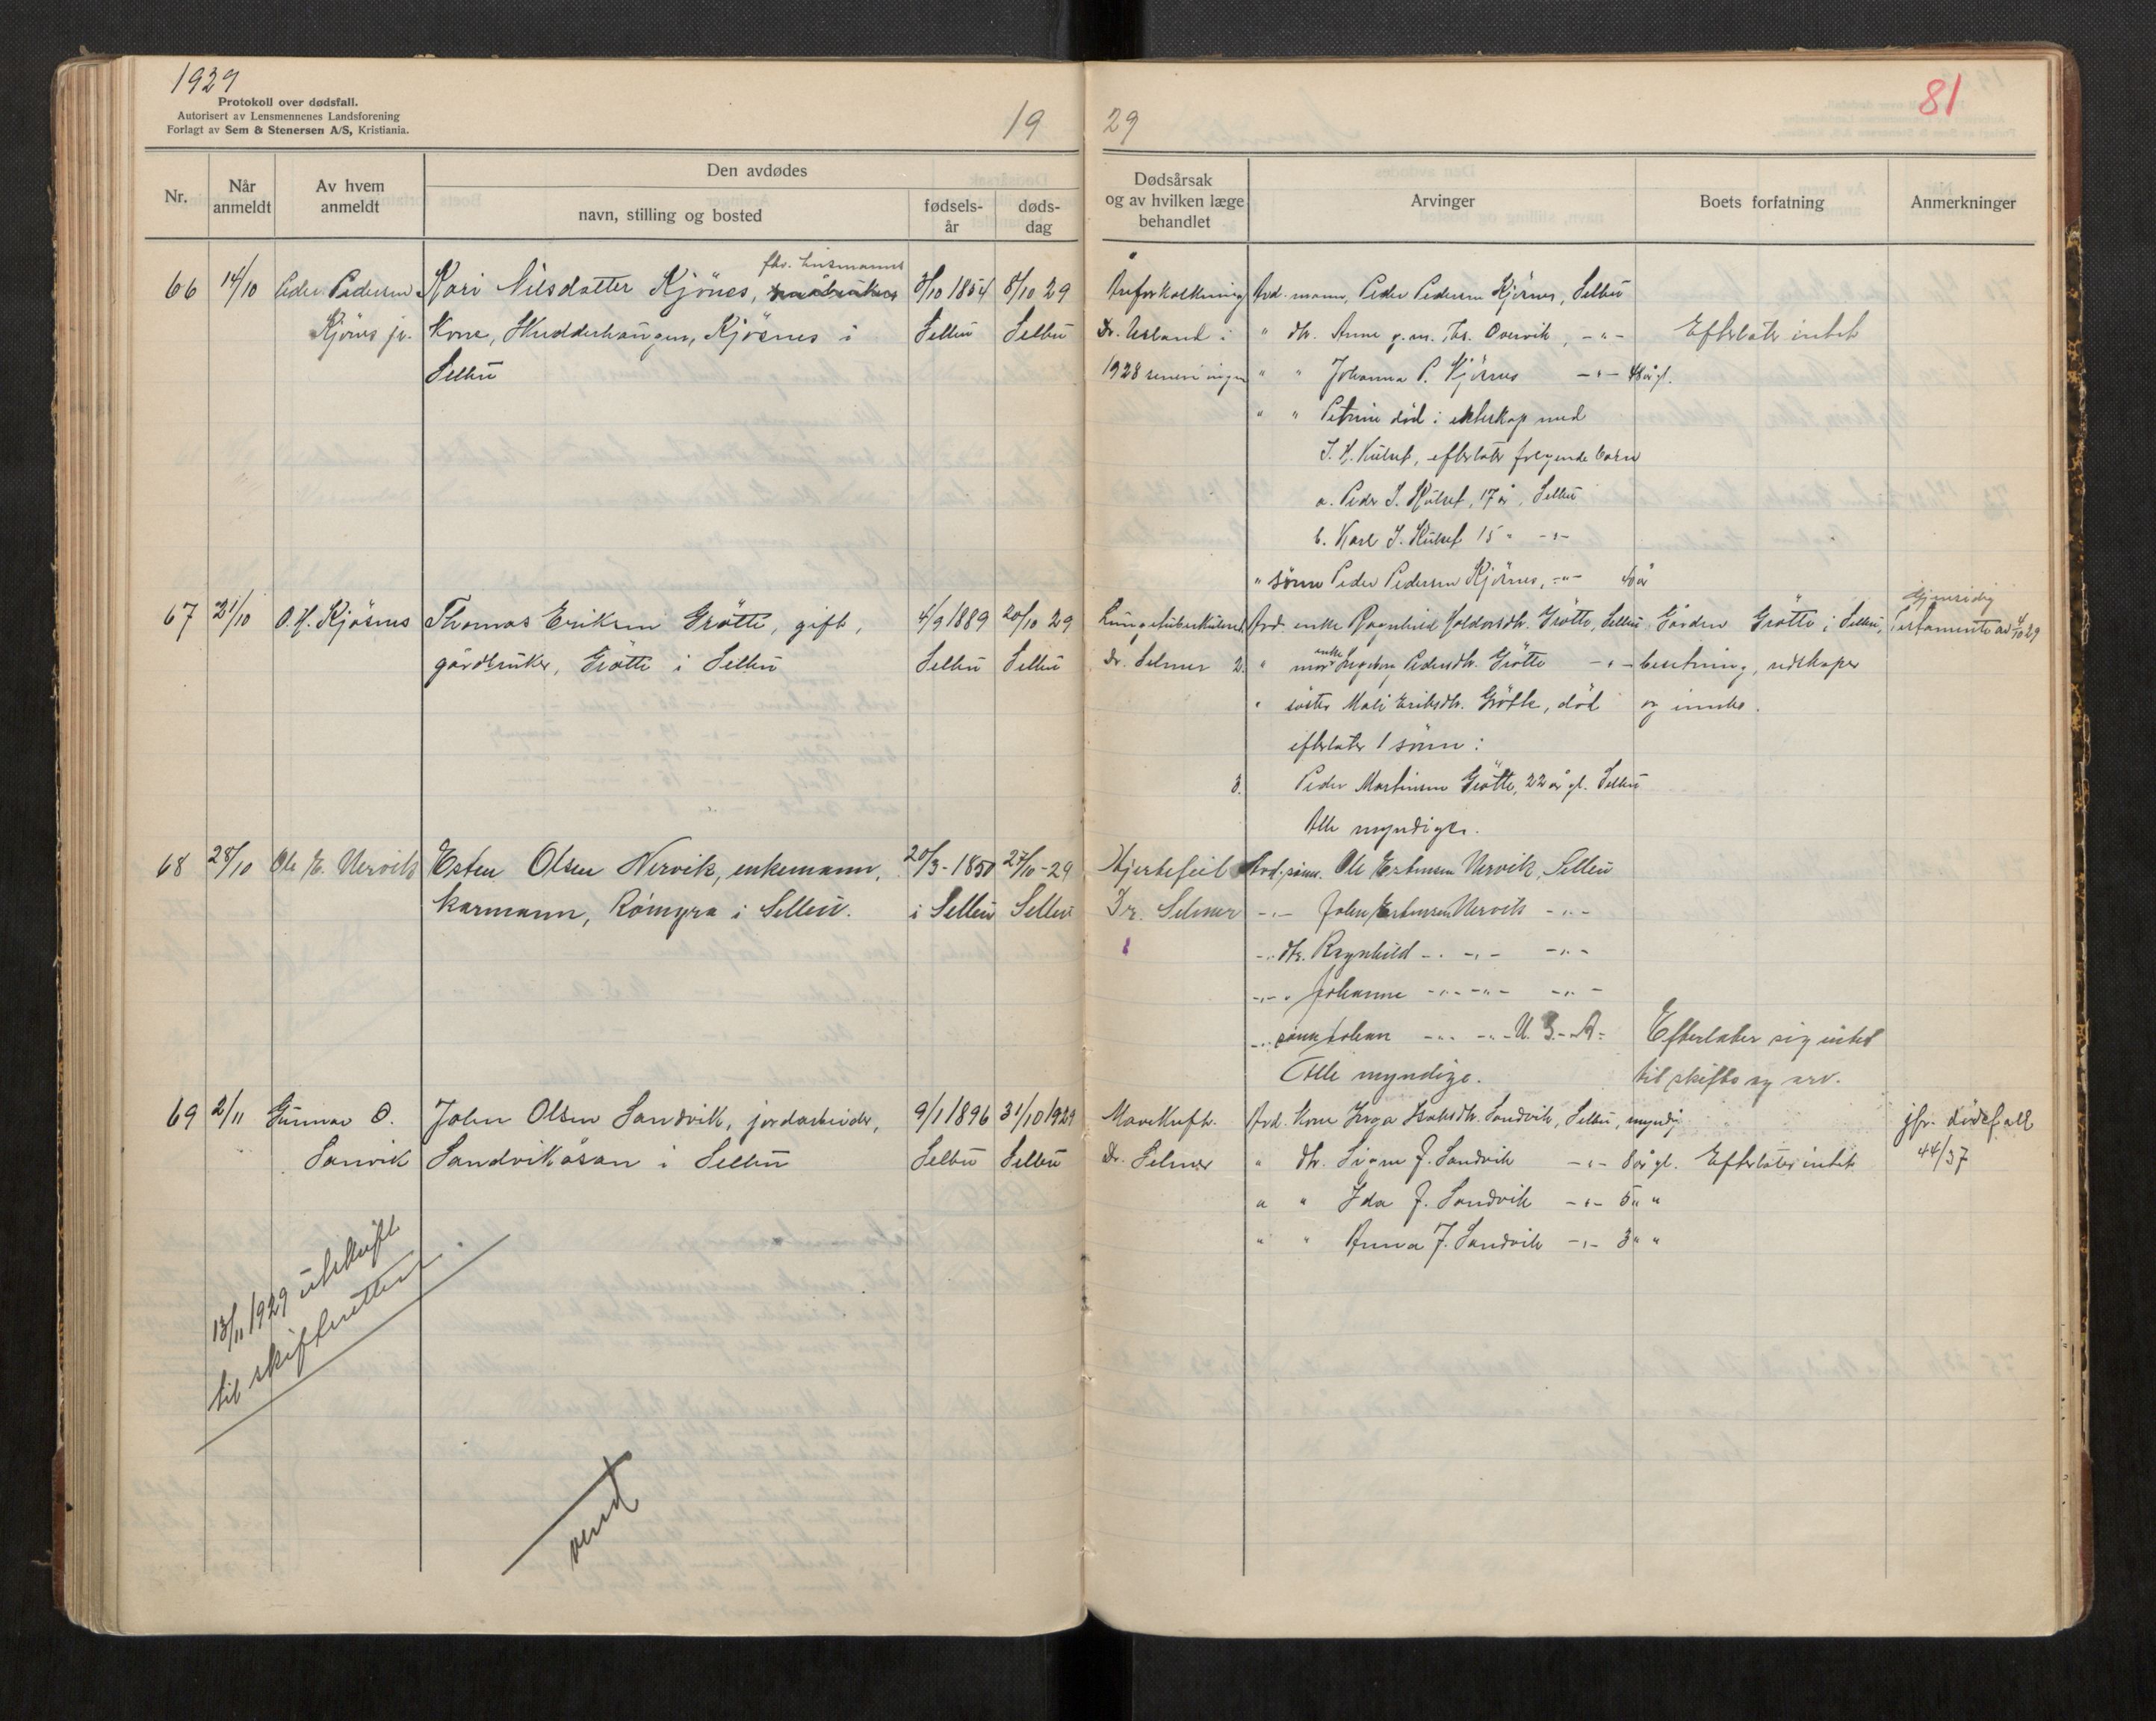 1929
Protokoll over dødsfall.
Autorisert av Lensmennenes Landsforening
Forlagt av Sem & Stenersen A/S, Kristiania.
19 29
81
Nr.
Når anmeldt
Av hvem anmeldt
Den avdødes
navn, stilling og bosted
fødsels-år
døds-dag
Dødsårsak og av hvilken læge behandlet
Arvinger
Boets forfatning
Anmerkninger
66 14/10 Peder Pedersen
Kjösnes jr.
fhv. husmanns
Kari Nilsdatter Kjösnes,
Kone, Kjösnes i
Selbu
8/10 29
Selbu Selbu
Areforkalkning
Dr. i
1928 senere ingen
Avd. mann, Peder Pedersen Kjösnes, Selbu
" dtr. Anne g.m. Overvik, -"-
" " Johanna P. Kjösnes -"- 48 år gl.
" " Petrine död i ekteskap med
efterlater fölgende barn
a. Peder J. 17 år, Selbu
b. Karl J. 15 " -"-
" sönn Peder Pedersen Kjösnes, -"- 40 år
Efterlater intet
67 21/10 O. H. Kjösnes
Thomas Eriksen Grötte, gift,
gårdbruker, Grötte i Selbu
4/9 1889 20/10 29
Selbu Selbu
Lungetuberkulose
Dr. Selmer
Avd. enke Ragnhild Haldorsdtr. Grötte, Selbu
2. " mor enke Ingeborg Pedersdtr. Grötte -"-
" söster Mali Eriksdtr. Grötte, död
efterlater 1 sönn:
3. Peder Martinsen Grötte, 22 år gl. Selbu
Alle myndige.
Gården Grötte i Selbu,
besetning, redskaper
og innbo.
Gjensidig
Testamente av 4/10 29
68 28/10 Ole E. Nervik
Esten Olsen Nervik, enkemann,
kårmann, Römyra i Selbu.
20/3-1850 27/10-29
i Selbu Selbu
Hjertefeil
Dr. Selmer
Avd. sönn. Ole Estensen Nervik, Selbu
-"- John Estensen Nervik -"-
-"- dtr. Ragnhild -"- -"- -"-
-"- " Johanne -"- -"- -"-
-"- sönn Johan -"- -"- U.S.A.
Alle myndige.
Efterlater sig intet
til skifte og arv.
69 2/11 Gunnar O.
Sanvik
John Olsen Sandvik, jordarbeider,
Sandvikåsan i Selbu
9/1 1896 31/10 1929
Selbu Selbu
Mavekreft.
Dr. Selmer
Avd. Kone Inga Isaksdtr. Sandvik, Selbu, myndig
" dtr. Signe J. Sandvik -"- 8 år gl.
" " Ida J. Sandvik -"- 5 " "
" " Anna J. Sandvik -"- 3 " "
Efterlater intet
jfr. dödsfall
44/37
13/11 1929 utskrift
til skifteretten.
vend